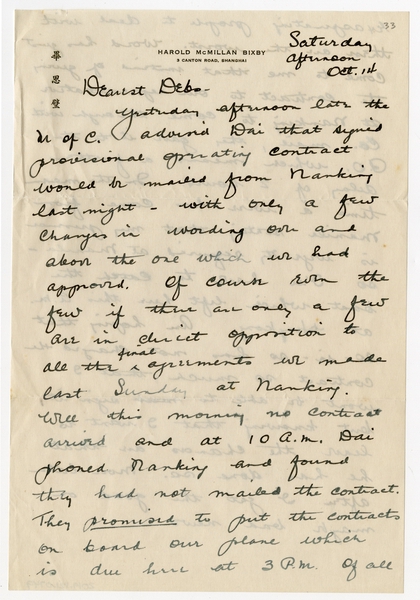 33
畢
思
璧
HAROLD McMILLAN BIXBY
3 CANTON ROAD, SHANGHAI
Saturday
afternoon
Oct. 14
Dearest Debo-
Yesterday afternoon late the
M of C. advised Dai that signed
provisional operating contract
would be mailed from Nanking
last night - with only a few
changes in wording over and
above the one which we had
approved. Of course even the
few if there are only a few
are in direct opposition to
all the final agreements we made
last Sunday at Nanking.
Well this morning no contract
arrived and at 10 A.M. Dai
phoned Nanking and found
they had not mailed the contract.
They promised to put the contracts
on board our plane which
is due here at 3 P.M. Of all